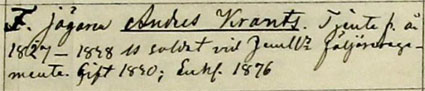 F. jägare Andres Krants. Tjente p. å
1827 – 1828 ss soldat vid Jemtl:s fältjägarege-
mente. Gift 1830; Enkl. 1876